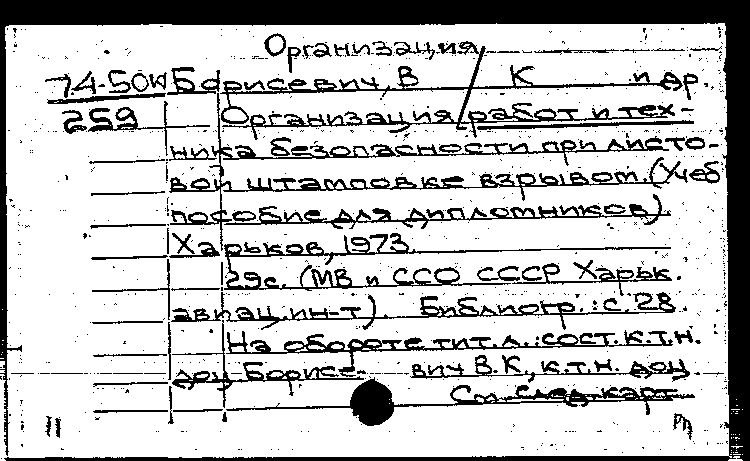 Организация
74-50W Борисевич, В К и др.
259 Организация работ и тех-
ника безопасности при листо-
вой штамповке взрывом. (Учеб
пособие для дипломников).
Харьков, 1973.
29с. (МВ и ССО СССР Харьк.
авиац. ин-т). Библиогр.: с. 28.
На обороте тит. л.: сост. к.т.н.
доц. Борисе- вич В.К., к.т.н. доц.
См. след. карт
11